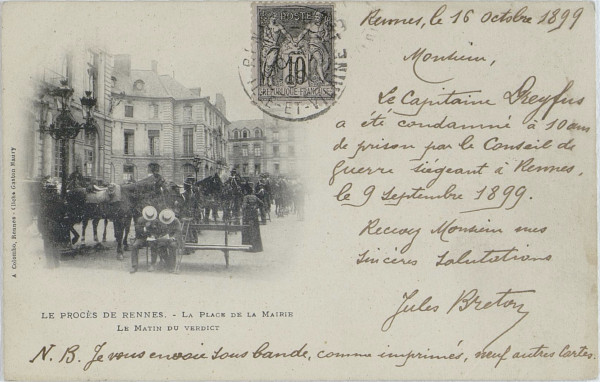 Rennes, le 16 Octobre 1899
Monsieur,
Le Capitaine Dreyfus
a été condamné à 10 ans
de prison par le Conseil de
guerre siégeant à Rennes,
le 9 Septembre 1899.
Recevez Monsieur mes
sincères salutations
Jules Breton
POSTE
10
REPUBLIQUE FRANÇAISE
ET-VI
A Colombo, Rennes - Cliché Gaston Haury
LE PROCÈS DE RENNES. - LA PLACE DE LA MAIRIE
LE MATIN DU VERDICT
N. B. Je vous envoie sous bande, comme imprimés, neuf autres cartes.